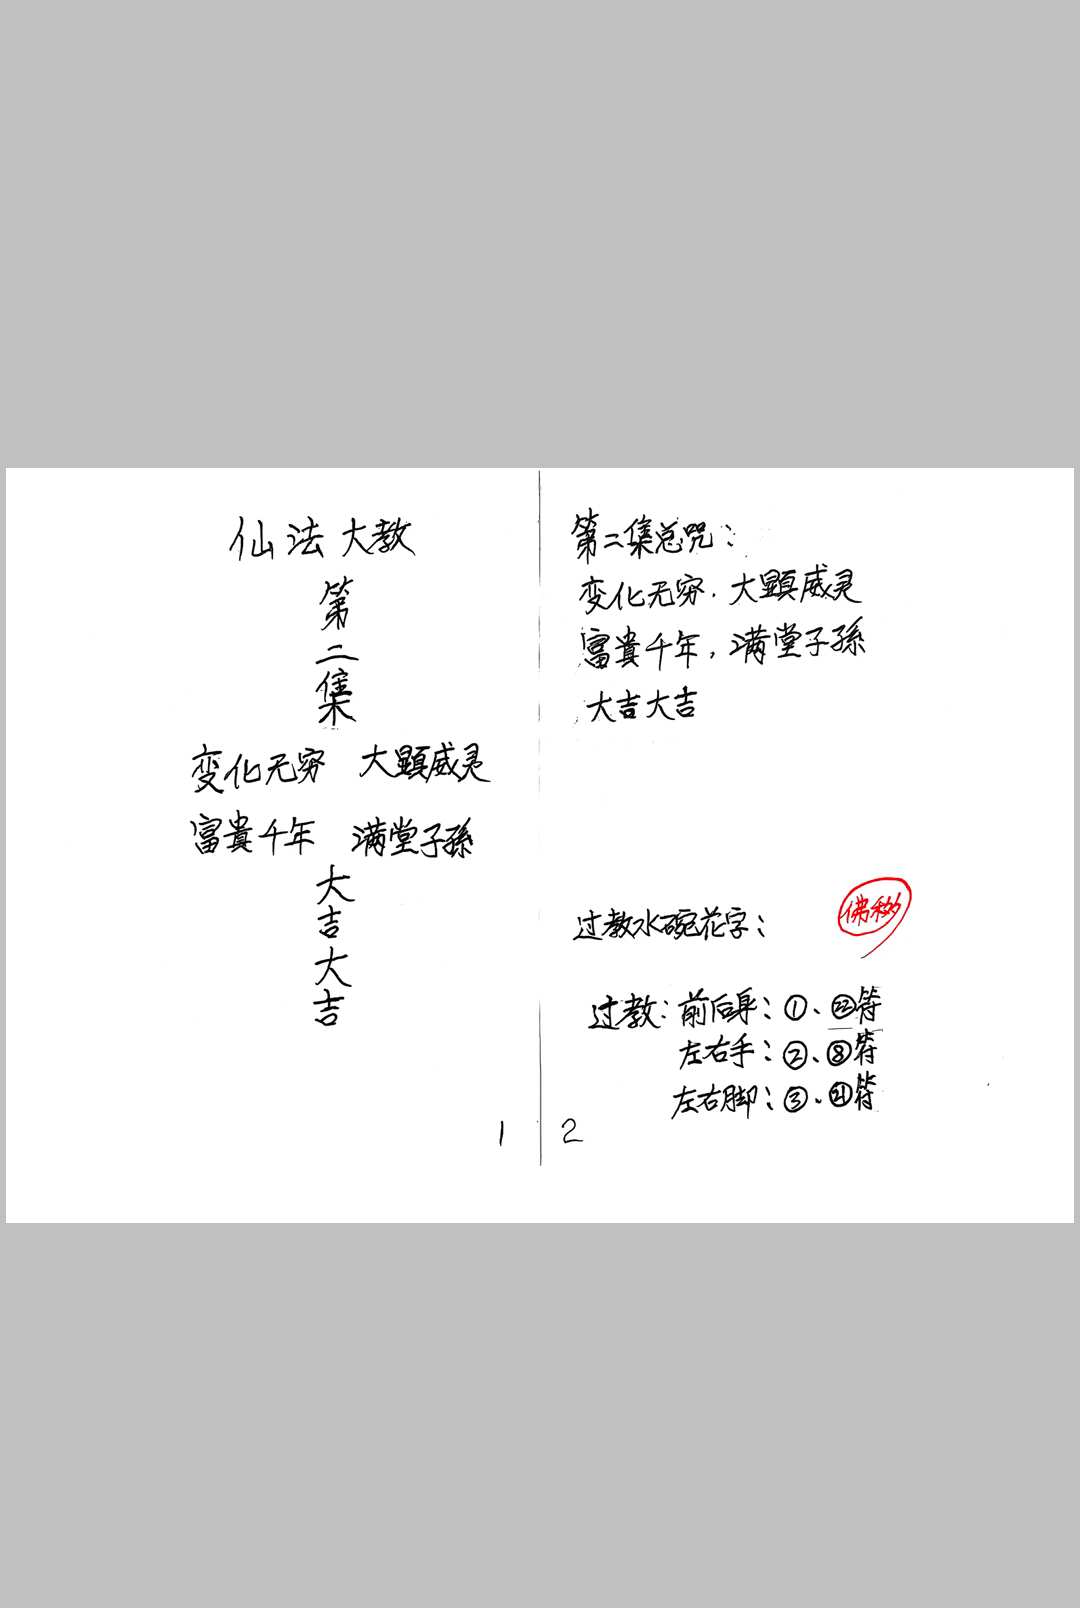 仙法大教
第
二
集
变化无穷 大顯威灵
富貴千年 满堂子孫
大
吉
大
吉
1
第二集总咒：
变化无穷．大顯威灵
富貴千年，满堂子孫
大吉大吉
过教水碗花字：
过教：前后身：①、㉒符
左右手：②、⑧符
左右脚：③、㉑符
2